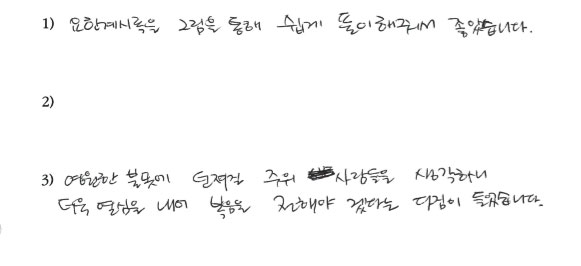 1) 요한계시록을 그림을 통해 쉽게 풀이해줘서 좋았습니다.
2)
3) 영원한 불못에 던져질 주위 사람들을 생각하니
더욱 열심을 내어 복음을 전해야 겠다는 다짐이 들었습니다.